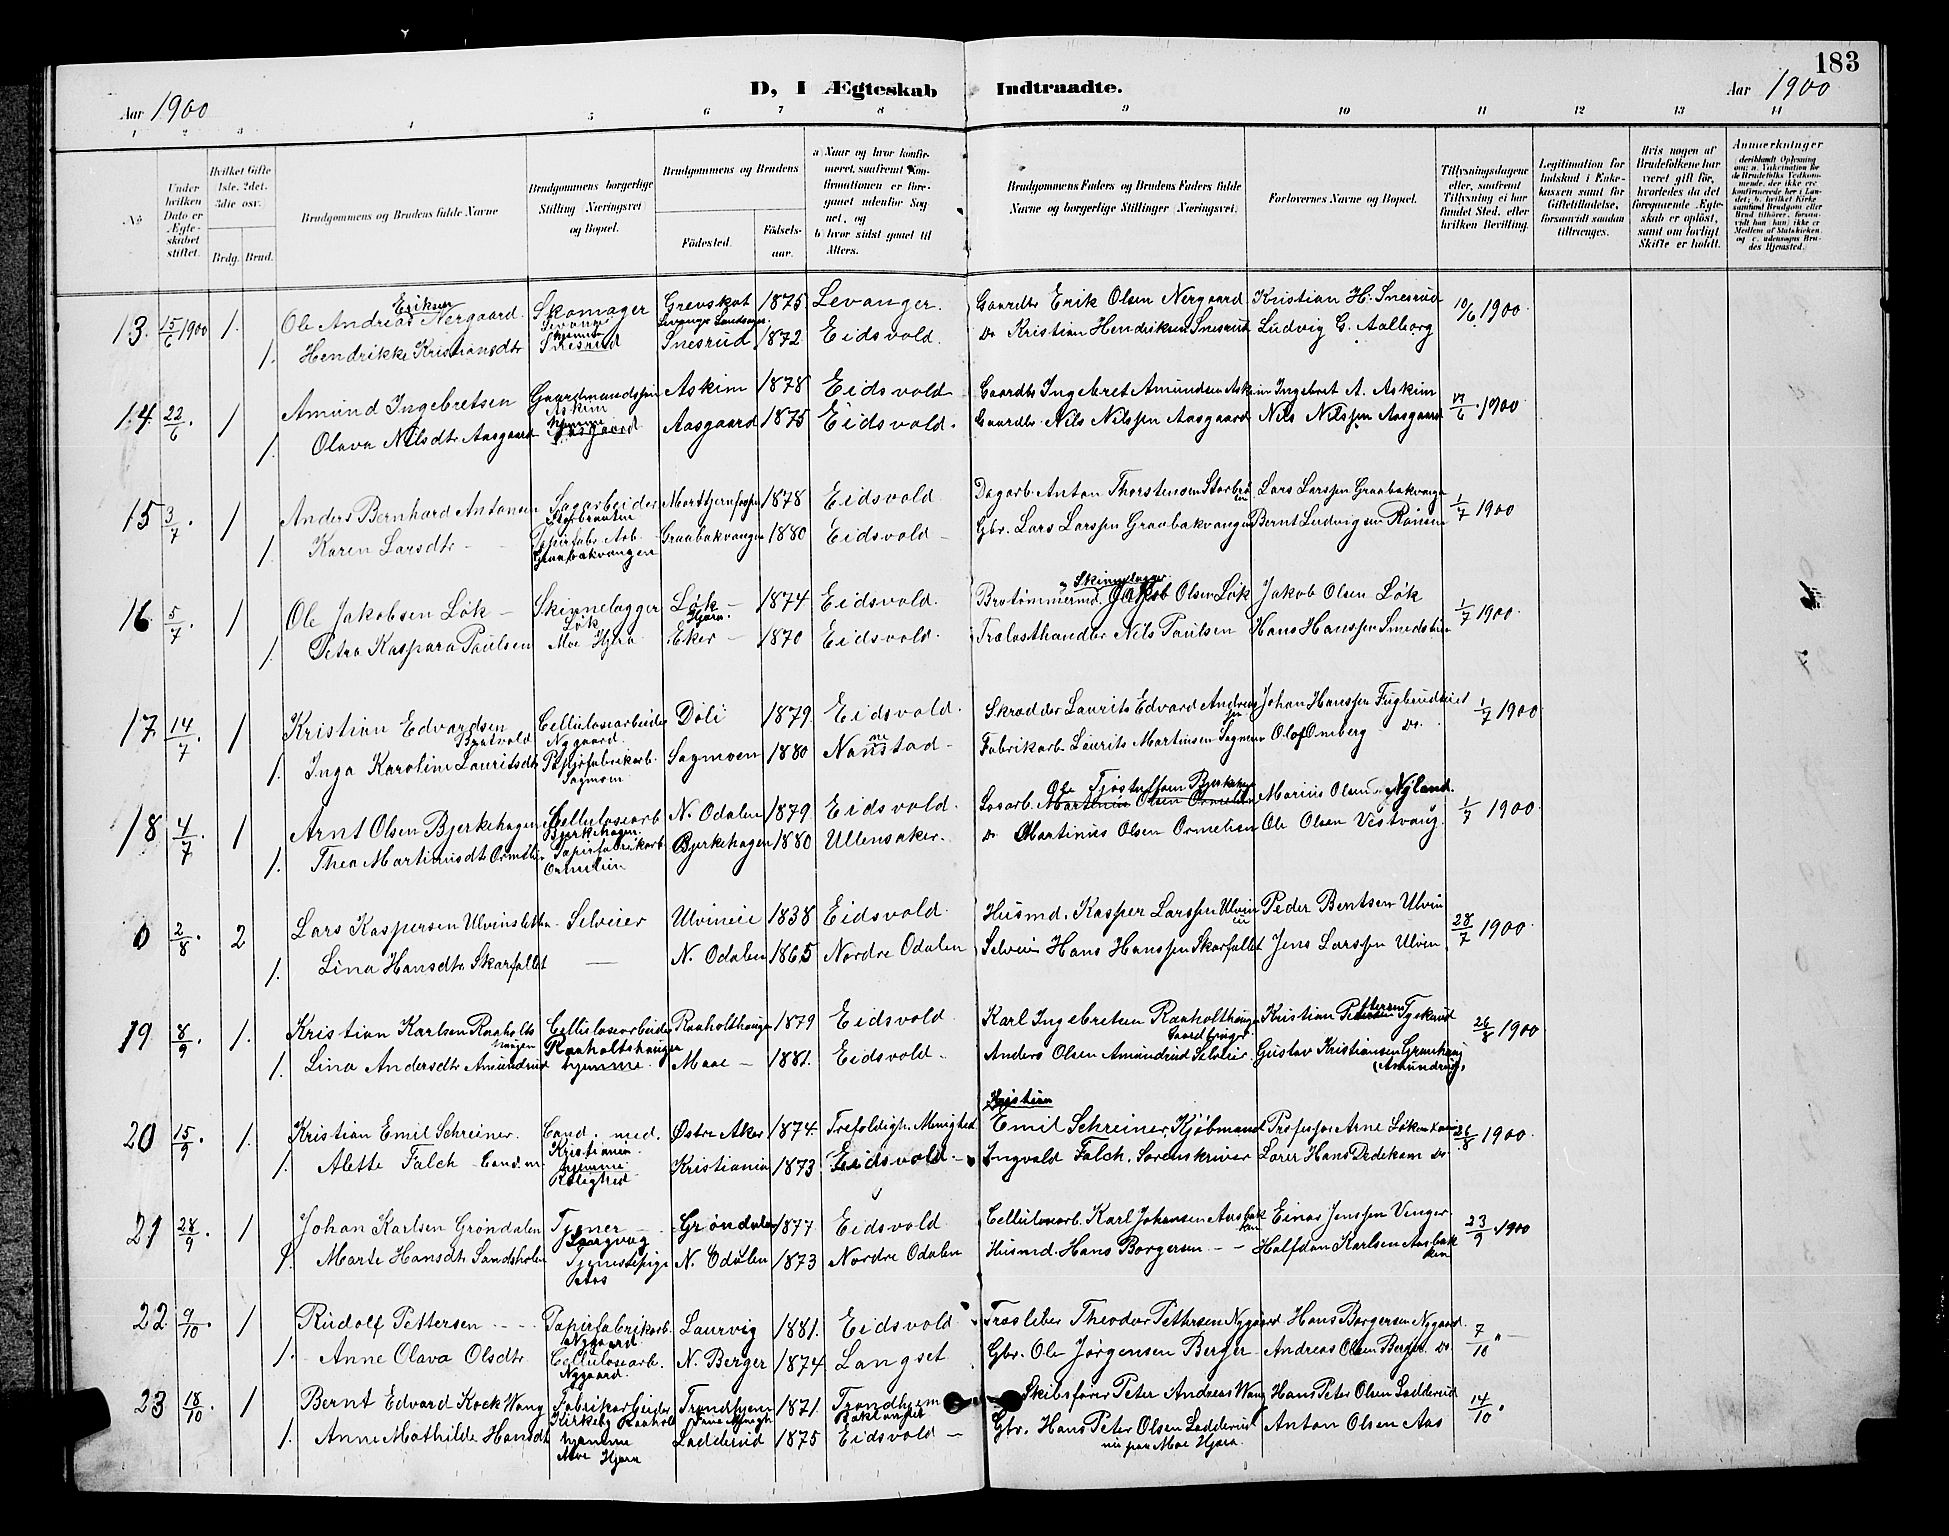 183
D, I Ægteskab Indtraadte.
Aar 1900
Aar 1900
1 2 3 4 5 6 7 8 9 10 11 12 13 14
№
Under hvilken Dato er Ægteskabet stiftet.
Hvilket Gifte 1ste, 2det, 3die osv.
Brdg. Brud.
Brudgommens og Brudens fulde Navne
Brudgommens borgerlige Stilling Næringsvei og Bopæl.
Brudgommens og Brudens
Födested.
Födselsaar.
a Naar og hvor konfirmeret, saafremt Konfirmationen er foregaaet udenfor Sognet, og
b hvor sidst gaaet til Alters.
Brudgommens Faders og Brudens Faders fulde Navne og borgerlige Stillinger (Næringsvei.
Forlovernes Navne og Bopæl.
Tillysningsdagene eller, saafremt Tillysning ei har fundet Sted, efter hvilken Bevilling.
Legitimation for Indskud i Enkekassen samt for Giftetilladelse, forsaavidt saadan tiltrænges.
Hvis nogen af Brudefolkene har været gift før, hvorledes da det foregaaende Ægteskab er opløst, samt om lovligt Skifte er holdt.
Anmærkninger
13. 15/6 1900 1. Ole Andreas Eriksen Nergaard. Skomager Grevskot 1875 Levanger. Gaardbr Erik Olsen Nergaard Kristian H. Snesrud 10/6 1900
1. Hendrikke Kristiansdtr hjemme Snesrud Snesrud 1872 Eidsvold. Do Kristian Hendriksen Snesrud Ludvig C. Aalborg
14. 22/6. 1 Amund Ingebretsen Gaardmandssøn Askim Askim 1878 Eidsvold Gaardbr Ingebret Amundsen Askim Ingebret A. Askim 17/6. 1900
1. Olava Nilsdtr Aasgaard hjemme Aasgaard Aasgaard 1875 Eidsvold. Gaardbr. Nils Nilssen Aasgaard Nils Nilssen Aasgaard
15 3/7. 1 Anders Bernhard Antonsen Sagarbeider Storbraaten 1878 Eidsvold Dagarb. Anton Thorstensen Storbråten Lars Larssen Graabakvangen 1/7 1900
1. Karen Larsdtr Papirfabr. Arb. Graabakvangen Graabakvangen 1880 Eidsvold Gbr. Lars Larssen Graabakvangen Bernt Ludvigsen Rønsen
16 5/7. 1 Ole Jakobsen Løk Skinnelægger Løk Løk 1874 Eidsvold. Brotømmermd. Skinnelægger Jakob Olsen Løk Jakob Olsen Løk 1/7 1900
1. Petra Kaspara Paulsen Moe Hjera Eker 1870 Eidsvold. Trælasthandler Nils Paulsen Hans Hanssen Smedstuen
17 14/7. 1 Kristian Edvardsen Bratvold Cellulosearbeider Nygaard Døli 1879 Eidsvold. Skrædder Laurits Edvard Andreassen Johan Hanssen Fuglerudeiet 1/7 1900
1. Inga Karoline Lauritsdtr Papirfabrikarb. Sagmoen Sagmoen 1880 Nannestad Fabrikarb. Laurits Martinsen Sagmoen Olof Omberg Do.
18 4/7. 1 Arnt Olsen Bjerkehagen Cellulosearb Bjerkehagen N. Odalen 1879 Eidsvold. Løsarb. Ole Tjostolfsen Bjerkehagen Martinius Olsen Ormelien Marius Olsen Nyland 1/7 1900
1. Thea Martinusdtr Ormelien Papirfabrikarb Ormelien Bjerkehagen 1880 Ullensaker. Do Martinius Olsen Ormelien Ole Olsen Vestvang
0 2/8. 2 Lars Kaspersen Ulvinsletten Selveier Ulvineie 1838 Eidsvold. Husmd. Kasper Larssen Ulvineie Peder Bentsen Ulvin 28/7 1900
1. Lina Hansdtr Skarfallet N. Odalen 1865 Nordre Odalen Selveier Hans Hanssen Skarfallet Jens Larssen Ulvin
19 8/9. 1. Kristian Karlsen Raaholtshaugen Cellulosearbeider Raaholtshaugen Raaholthaugen 1879 Eidsvold. Karl Ingebretsen Raaholthaugen Gaardbruger Kristian Pettersen Tyskerud 26/8 1900
1. Lina Andersdtr Amundrud hjemme Maae 1881. Eidsvold. Anders Olsen Amundrud Selveier Gustav Kristiansen Granhaug (Amundrud).
20 15/9. 1. Kristian Emil Schreiner. Cand. med. Kristiania Østre Aker 1874. Trefoldigh. Menighed Kristian Emil Schreiner, Kjøbmand Professor Arne Løken 26/8 1900
1. Alette Falch Cand. m hjemme Rolighed Kristiania 1873 Eidsvold. Ingvald Falch. Sorenskriver Lærer Hans Dedekam Do.
21 28/9. 1 Johan Karlsen Grøndalen Tjener Grøndalen 1877 Eidsvold Cellulosearb. Karl Johansen Aasbakken Einar Jenssen Venger 23/9 1900
1. Marte Hansdtr Sandsholen Tjenestepige Aas N. Odalen 1873 Nordre Odalen Husmd. Hans Borgersen Halfdan Karlsen Aasbakken
22 9/10. 1 Rudolf Pettersen Papirfabrikarb. Nygaard Laurvig 1881. Eidsvold Træsliber Theodor Pettersen Nygaard Hans Borgersen Nygaard 7/10 "
1. Anne Olava Olsdtr Cellulosearb. Nygaard. N. Berger 1874 Langset Gbr. Ole Jørgensen Berger Andreas Olsen Berger Do
23 18/10. 1 Bernt Edvard Kock Wang Fabrikarbeider Kirkeby Raaholt Trondhjem 1871. Trondhjem Skibsfører Peter Andreas Wang Hans Peter Olsen Ladderud 14/10.
1. Anne Mathilde Hansdtr hjemme Moe Hjera Ladderud 1875 Eidsvold Gbr. Hans Peter Olsen Ladderud nu paa Moe Hjera. Anton Olsen Aas